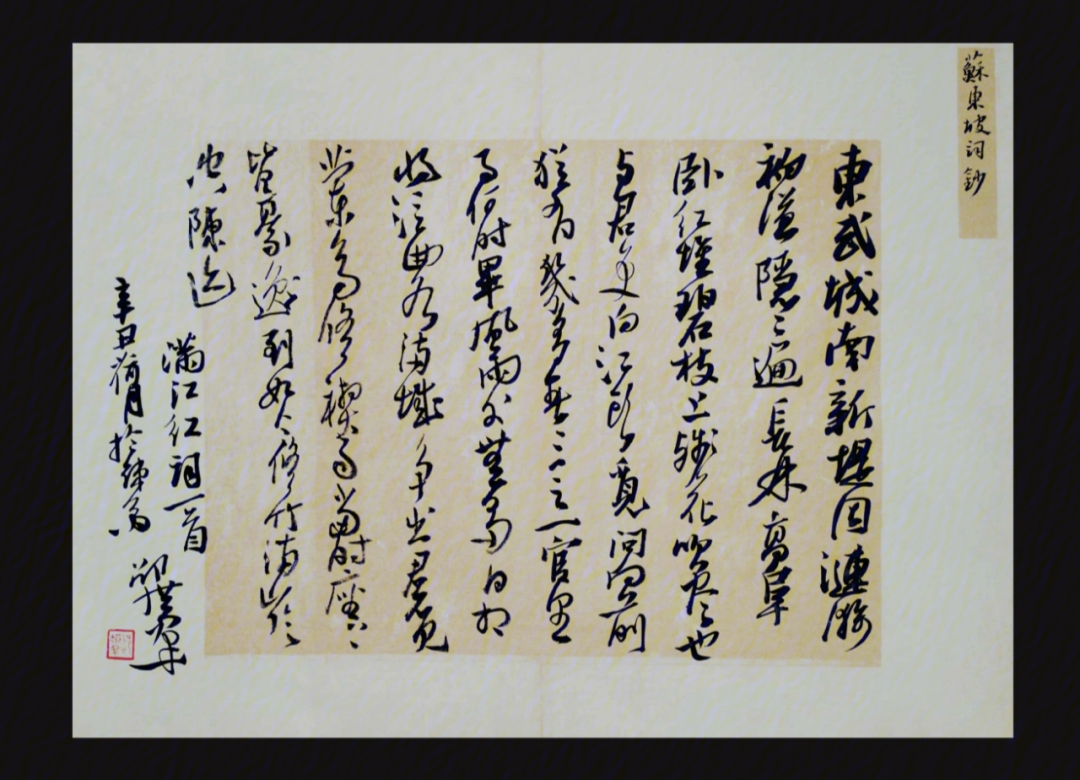 蘇東坡詞鈔
東武城南新堤固漣漪
初溢隱〻遍長林高阜
卧紅堆碧枝上殘花吹尽也
与君更向江頭覓問向前
猶有幾多春三之一官里
事何时畢風雨外無多日相
將泛曲水滿城爭出君不見
蘭亭修禊事當时座上
皆豪逸到如今修竹滿山陰
空陳迹
滿江紅詞一首
辛丑荷月於